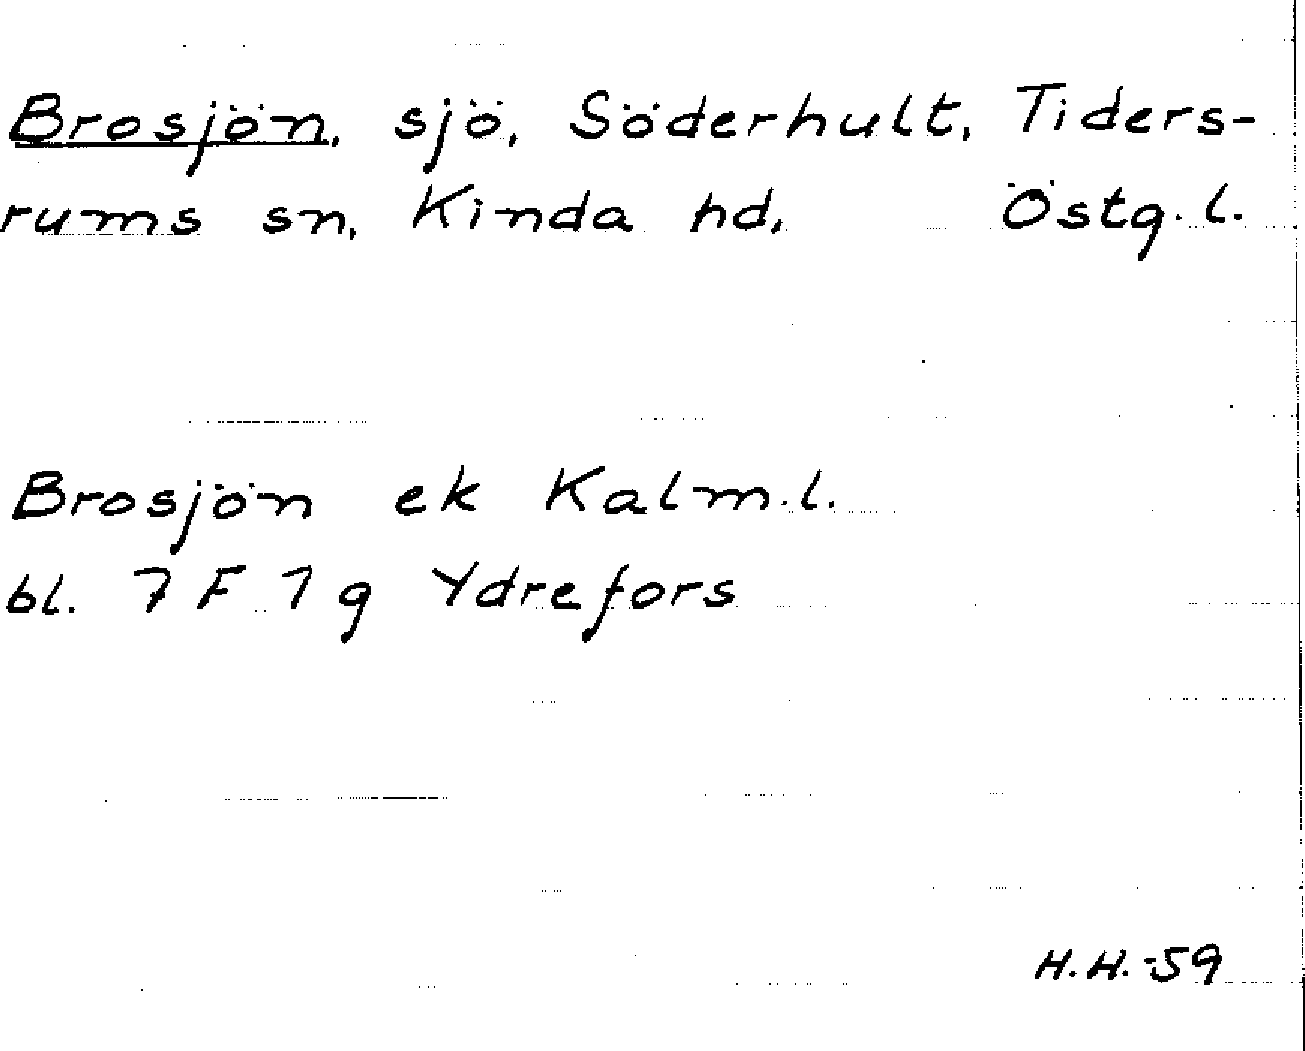 Brosjön, sjö, Söderhult, Tiders-
rums sn, Kinda hd, Östg. l.
Brosjön ek Kalm. l.
bl. 7 F 1 g Ydrefors
H.H.-59